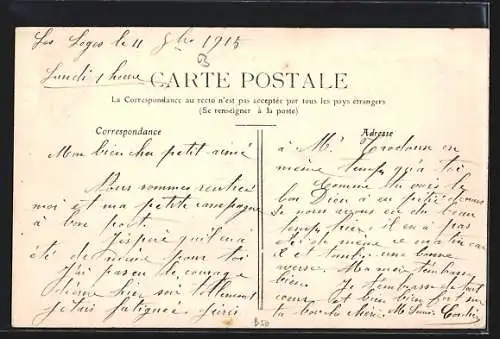 Les Loges le 11 8bre 1915
Lundi 1 heure
B
CARTE POSTALE
La Correspondance au recto n'est pas acceptée par tous les pays étrangers
(Se renseigner à la poste)
Correspondance
Mon bien cher petit aimé
Nous sommes rentrier
moi et ma petite compagne
à bon port.
J'espère qu'il en a
été de même pour toi
J'ai pas eu le courage
hier soir tellement
j'étais fatiguée
B50
Adresse
à Mr en
même temps qu'à toi
Comme tu vois le
bon Dieu à eu pitié de nous
nous avons eu du beau
temps hier, il en a pas
été de même ce matin car
il et tombé une bonne
averse. Ma mère t'embrasse
bien. Je t'embrasse de tout
cœur et bien bien fort sur
ta bouche chérie.